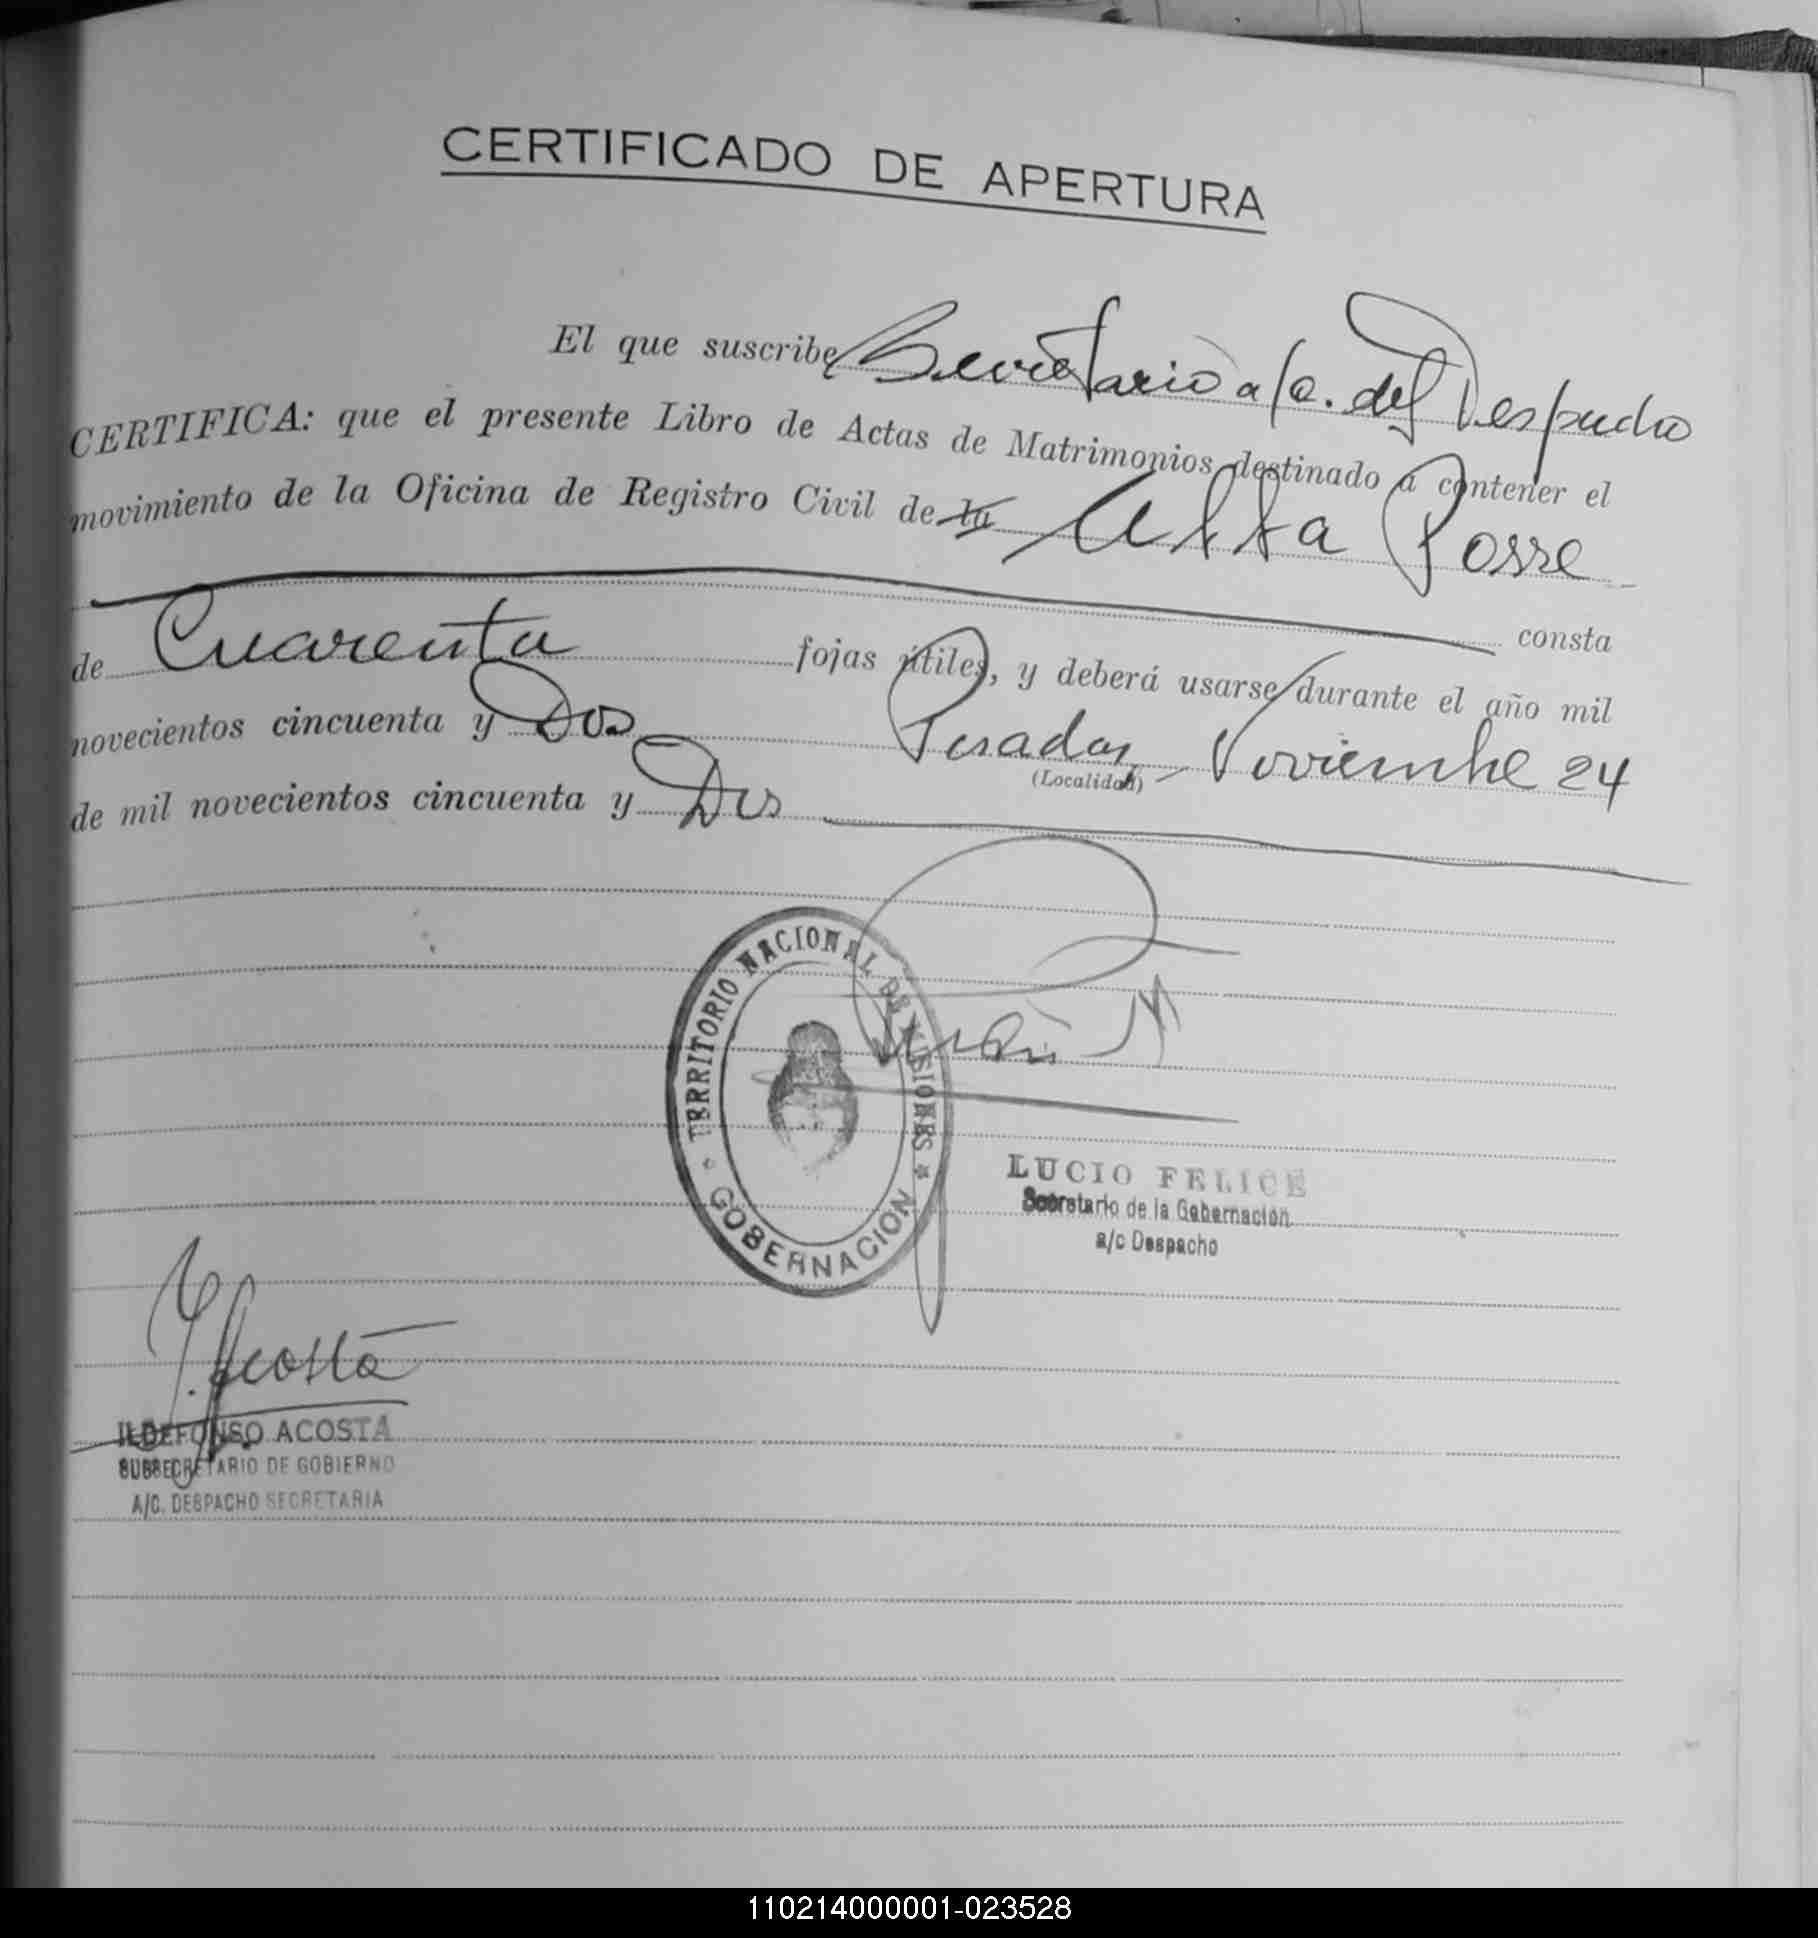 CERTIFICADO DE APERTURA
El que suscribe Secretario a/c. del Despacho
CERTIFICA: que el presente Libro de Actas de Matrimonios destinado a contener el
movimiento de la Oficina de Registro Civil de la Alba Posse
consta
de Cuarenta fojas útiles, y deberá usarse durante el año mil
novecientos cincuenta y Dos Posadas, Noviembre 24
(Localidad)
de mil novecientos cincuenta y Dos
TERRITORIO NACIONAL DE MISIONES
GOBERNACION
LUCIO FELICE
Secretario de la Gobernación
a/c Despacho
I. Acosta
ILDEFONSO ACOSTA
SUBSECRETARIO DE GOBIERNO
A/C. DESPACHO SECRETARIA
110214000001-023528